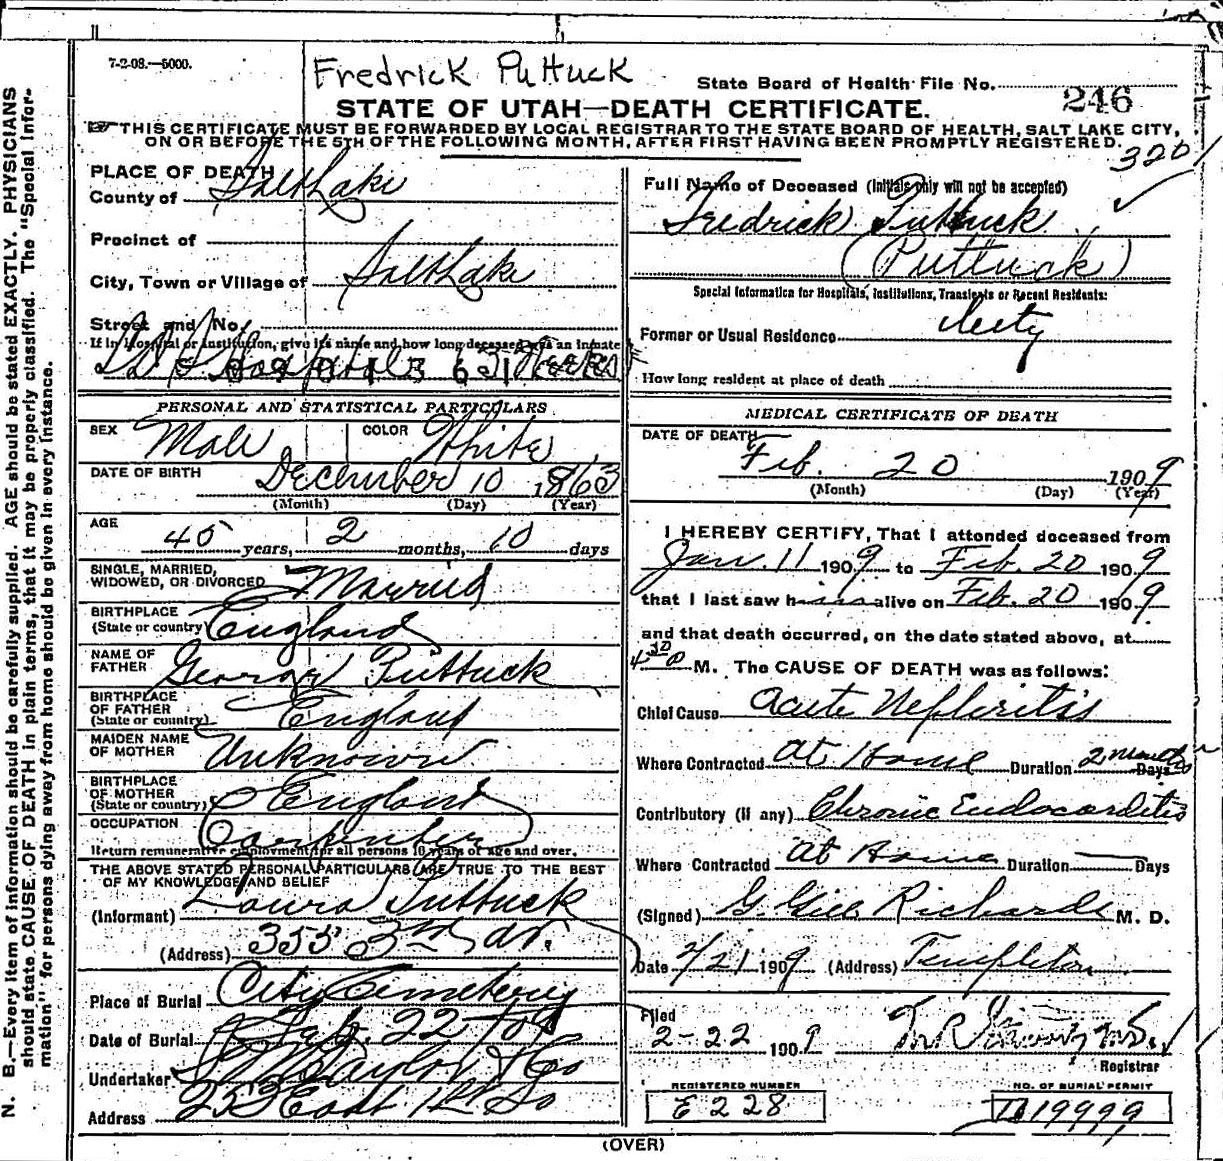 7-2-08.—5000.
Fredrick Puttuck
State Board of Health File No. 246
STATE OF UTAH—DEATH CERTIFICATE.
THIS CERTIFICATE MUST BE FORWARDED BY LOCAL REGISTRAR TO THE STATE BOARD OF HEALTH, SALT LAKE CITY,
ON OR BEFORE THE 5TH OF THE FOLLOWING MONTH, AFTER FIRST HAVING BEEN PROMPTLY REGISTERED.
320
N. B.—Every item of information should be carefully supplied. AGE should be stated EXACTLY. PHYSICIANS
should state CAUSE OF DEATH in plain terms, that it may be properly classified. The "Special Infor-
mation" for persons dying away from home should be given in every instance.
PLACE OF DEATH
County of Salt Lake
Precinct of
City, Town or Village of Salt Lake
Street and No.
If in Hospital or Institution, give its name and how long deceased was an inmate
L D S Hospital 3 Weeks
PERSONAL AND STATISTICAL PARTICULARS
SEX Male COLOR White
DATE OF BIRTH December 10 1863
(Month) (Day) (Year)
AGE
45 years, 2 months, 10 days
SINGLE, MARRIED,
WIDOWED, OR DIVORCED Married
BIRTHPLACE
(State or country) England
NAME OF
FATHER George Puttuck
BIRTHPLACE
OF FATHER
(State or country) England
MAIDEN NAME
OF MOTHER Unknown
BIRTHPLACE
OF MOTHER
(State or country) England
OCCUPATION Carpenter
Return remunerative employment for all persons 10 years of age and over.
THE ABOVE STATED PERSONAL PARTICULARS ARE TRUE TO THE BEST
OF MY KNOWLEDGE AND BELIEF
(Informant) Laura Puttuck
(Address) 355 3rd av.
Place of Burial City Cemetery
Date of Burial Feb. 22 - 09
Undertaker Taylor & Co
Address 253 East 1st So
Full Name of Deceased (Initials only will not be accepted)
Fredrick Puttuck
(Puttuck)
Special Information for Hospitals, Institutions, Transients or Recent Residents:
Former or Usual Residence City
How long resident at place of death
MEDICAL CERTIFICATE OF DEATH
DATE OF DEATH
Feb. 20 1909
(Month) (Day) (Year)
I HEREBY CERTIFY, That I attonded deceased from
Jan. 11 1909 to Feb. 20 1909
that I last saw him alive on Feb. 20 1909
and that death occurred, on the date stated above, at
4 30 P M. The CAUSE OF DEATH was as follows:
Chief Cause Acute Nephritis
Where Contracted At Home Duration 2 months Days
Contributory (if any) Chronic Endocarditis
Where Contracted At Home Duration — Days
(Signed) G. Gill Richards M. D.
Date 2/21 1909 (Address) Templeton
Filed
2-22 1909
Registrar
REGISTERED NUMBER
E 228
NO. OF BURIAL PERMIT
19999
(OVER)